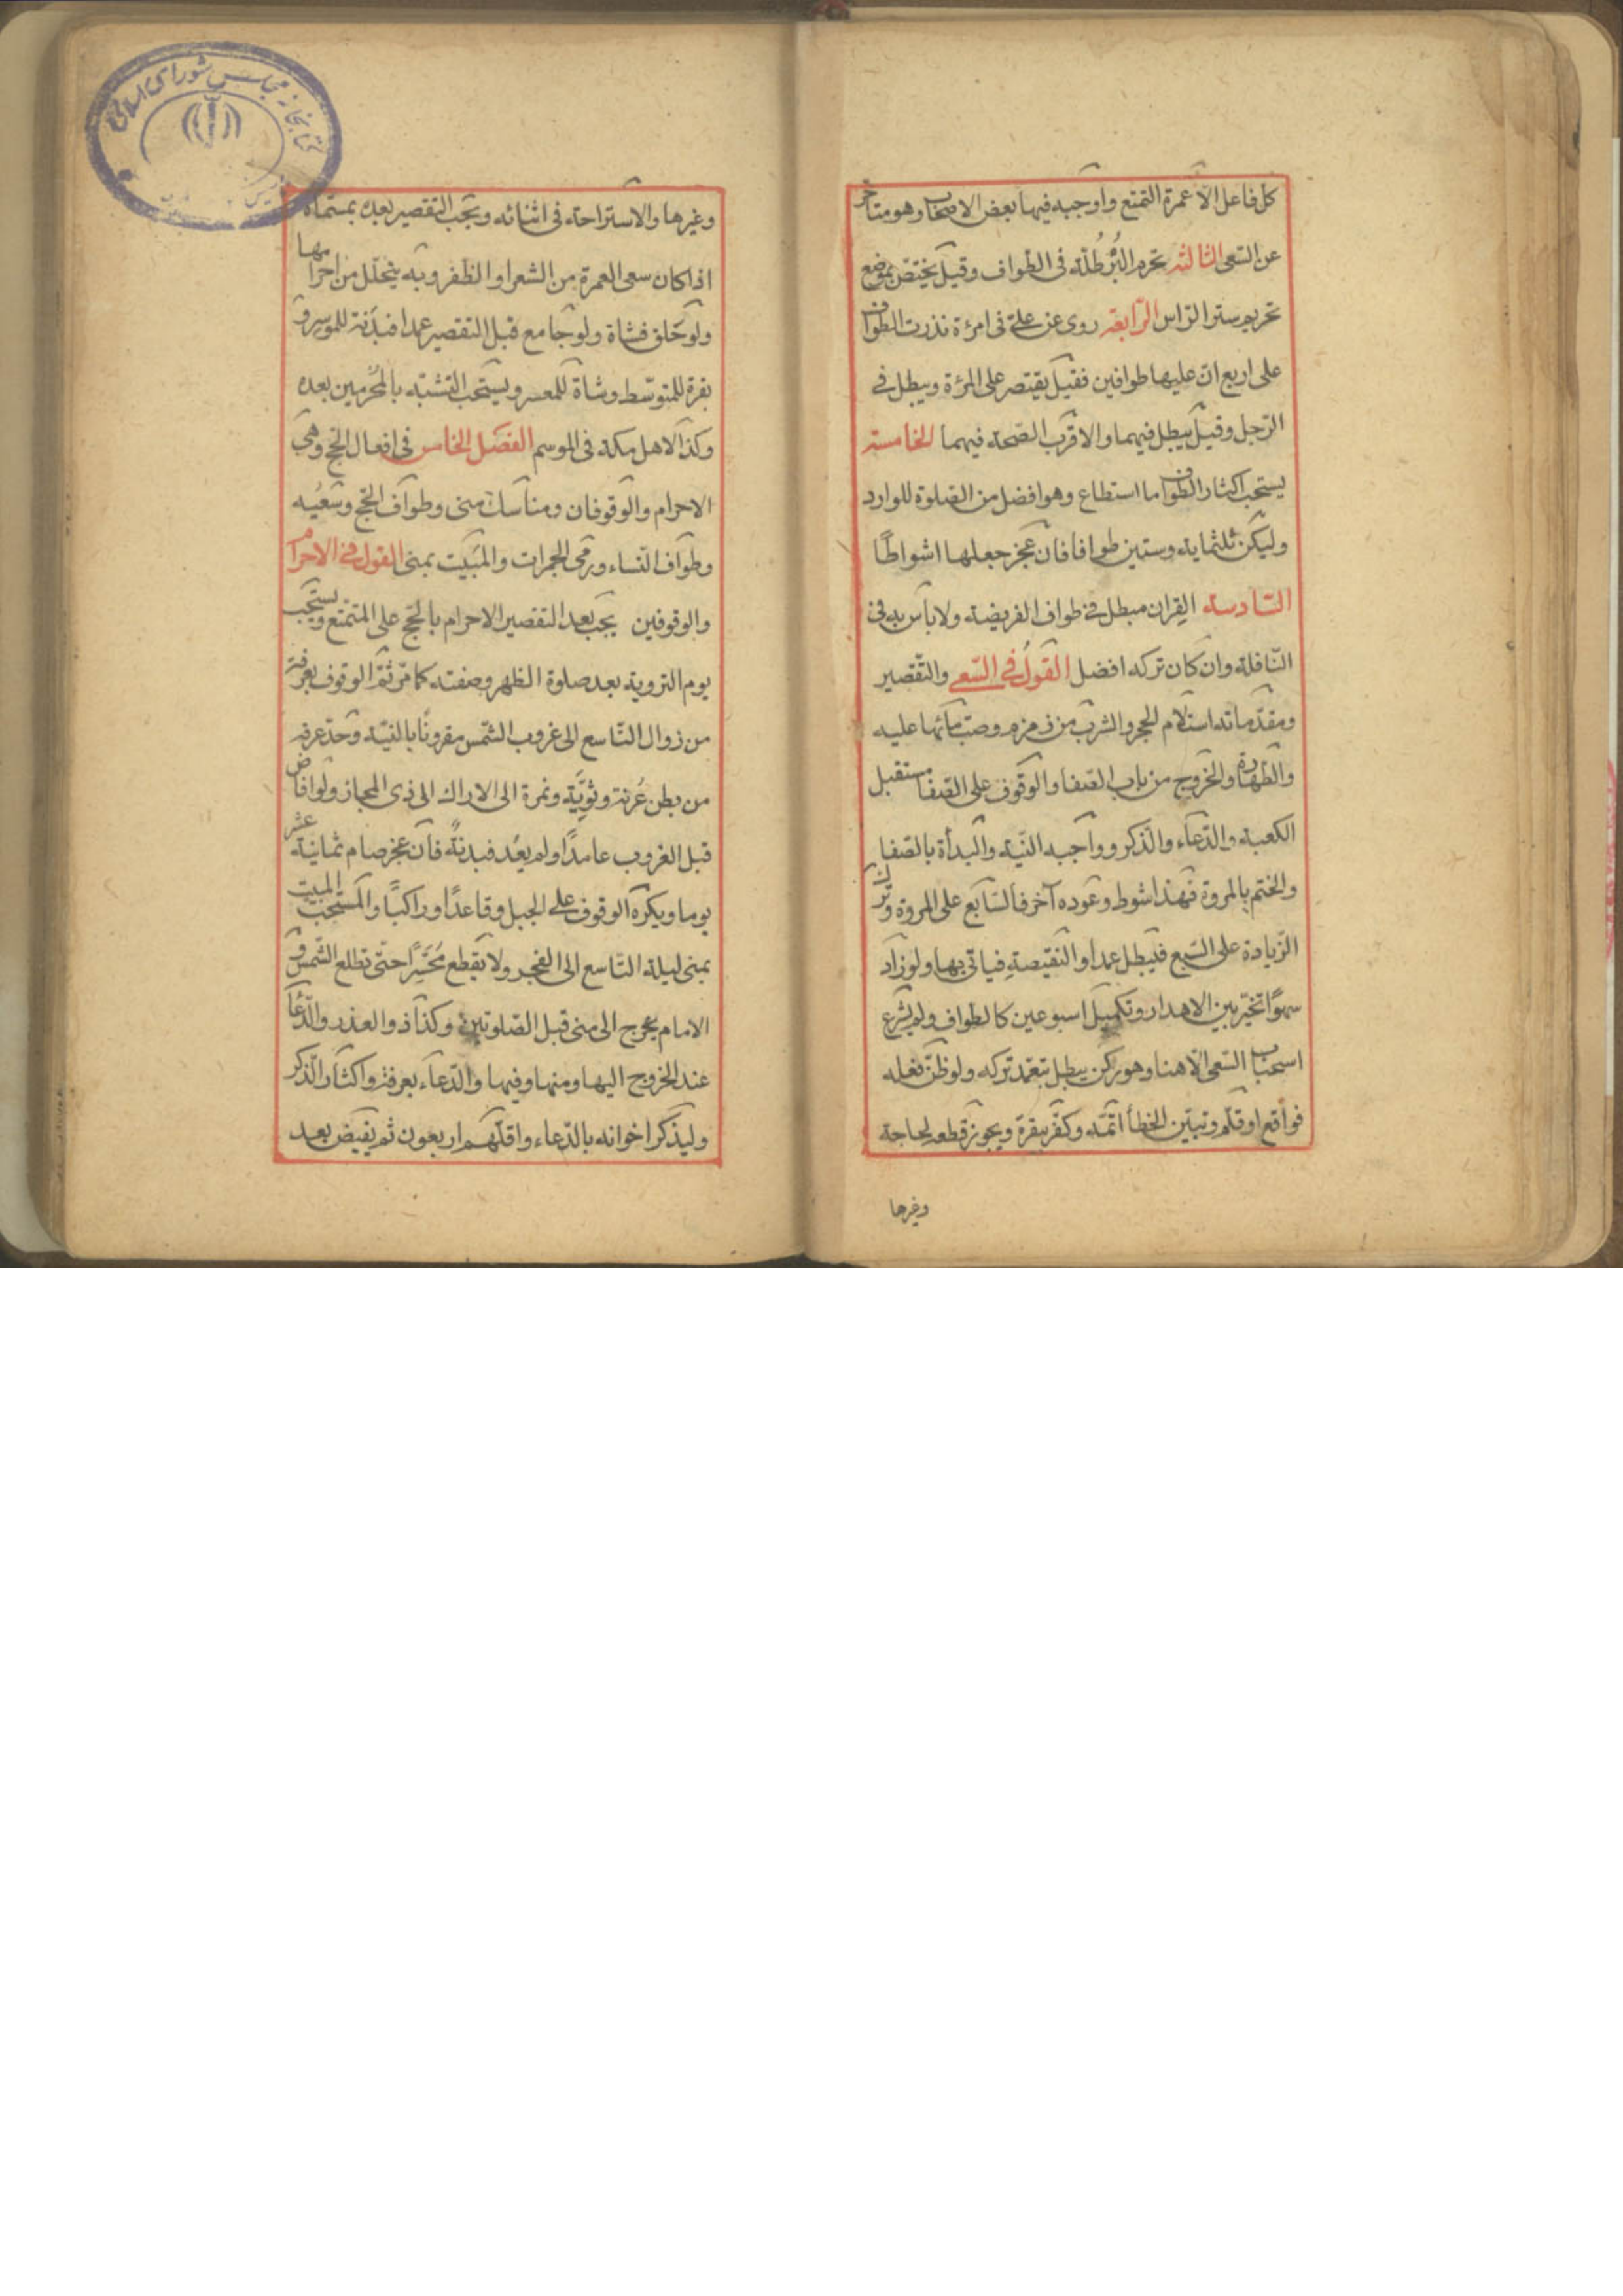 كل فاعل الا عمرة التمتع واوجبه فيها بعض الاصحاب وهو متاخر
عن السعى الثالثة تحرم البُرْطُلّة فى الطواف وقيل يختصّ بموضع
تحريم ستر الراس الرّابعة روى عن علىّ فى امرءة نذرت الطواف
على اربع انّ عليها طوافين فقيل يقتصر على المرءة ويبطل فى
الرّجل وقيل يبطل فيهما والاقرب الصّحة فيهما الخامسة
يستحب اكثار الطواف ما استطاع وهو افضل من الصّلوة للوارد
وليكن ثلثماية وستين طوافا فان عجز جعلها اشواطًا
السّادسة القِران مبطل فى طواف الفريضة ولا باس به فى
النّافلة وان كان تركه افضل القولُ فى السّعى والتّقصير
ومقدّماته استلام الحجر والشرب من زمزم وصبّ مائها عليه
والطهارة والخروج من باب الصّفا والوقوف على الصّفا مستقبل
الكعبة والدّعاء والذّكر وواجبه النيّة والبدأة بالصّفا
والختم بالمروة فهذا شوط وعوده آخر فالسّابع على المروة وترك
الزّيادة على السّبع فيبطل عمدا والنقيصةِ فياتى بها ولو زاد
سهوًا تخيّر بين الاهدار وتكميل اسبوعين كالطواف ولم يشرع
استحباب السّعى الّا هنا وهو ركن يبطل بتعمّد تركه ولو ظنّ فعله
فواقع او قلّم وتبيّن الخطأ اتمّه وكفّر ببقرة ويجوز قطعه لحاجة
وغيرها
وغيرها والاستراحة فى اثنائه ويجب التقصير بعده بمسمّاه
اذا كان سعى العمرة من الشعر او الظفر وبه يتحلّل من احرامها
ولو حلق فشاة ولو جامع قبل التقصير عمدا فبدنة للموسر و
بقرة للمتوسّط وشاة للمعسر ويستحب التشبّه بالمُحرِمين بعده
وكذا لاهل مكة فى الموسم الفصل الخامس فى افعال الحج وهى
الاحرام والوقوفان ومناسك منى وطواف الحجّ وسَعيُه
وطواف النّساء ورمى الجمرات والمَبيت بمنى القول فى الاحرام
والوقوفين يجب بعد التقصير الاحرام بالحجّ على المتمتّع ويستحب
يوم التروية بعد صلوة الظهر وصفته كما مرّ ثمّ الوقوف بعرفة
من زوال التّاسع الى غروب الشّمس مقرونًا بالنيّة وحدّ عرفة
من بطن عُرنة وثويّة ونمرة الى الاراك الى ذى المجاز ولو افاض
قبل الغروب عامدًا ولم يعُد فبدنةٌ فان عجز صام ثمانية عشر
يوما ويكره الوقوف على الجبل وقاعدًا وراكبًا والمستحب المبيت
بمنى ليلة التّاسع الى الفجر ولا يقطع مُحسّرًا حتّى تطلع الشّمس و
الامام يخرج الى منى قبل الصّلوتين وكذا ذو العذر والدّعاء
عند الخروج اليها ومنها وفيها والدّعاء بعرفة واكثار الذّكر
وليذكر اخوانه بالدّعاء واقلّهم اربعون ثم يفيض بعد
كتابخانه مجلس شورای اسلامی